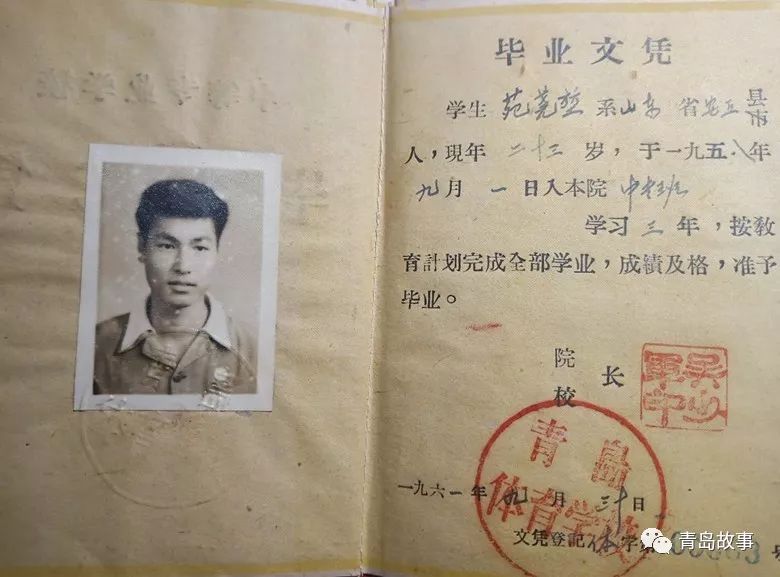 毕业文凭
学生 苑 系山东省安丘县市
人，現年二十三岁，于一九五八年
九月一日入本院中专班
学习三年，按敎
育計划完成全部学业，成績及格，准予
毕业。
院校长
青島
体育学校
一九六一年九月三十日
文凭登記体字第
青岛故事